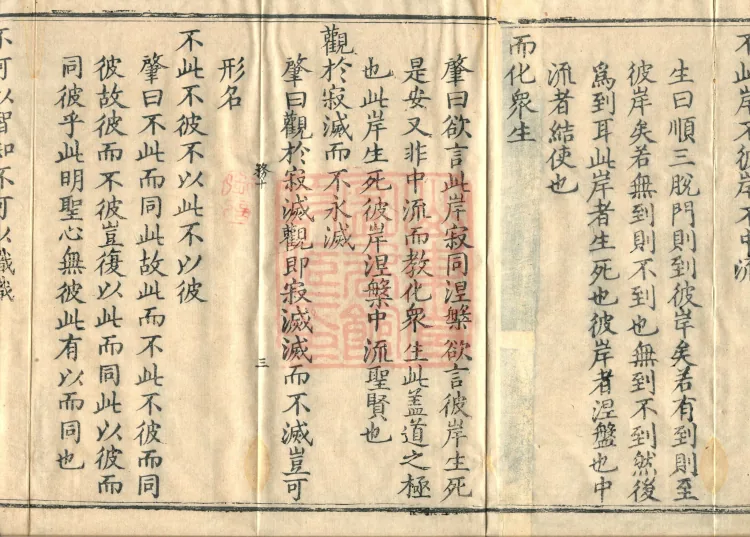 不此岸不彼岸不中流
生曰順三脫門則到彼岸矣若有到則至
彼岸矣若無到則不到也無到不到然後
為到耳此岸者生死也彼岸者涅盤也中
流者結使也
而化眾生
肇曰欲言此岸寂同涅槃欲言彼岸生死
是安又非中流而教化眾生此蓋道之極
也此岸生死彼岸涅槃中流聖賢也
觀於寂滅而不永滅
肇曰觀於寂滅觀即寂滅滅而不滅豈可
三
形名
不此不彼不以此不以彼
肇曰不此而同此故此而不此不彼而同
彼故彼而不彼豈復以此而同此以彼而
同彼乎此明聖心無彼此有以而同也
不可以智知不可以識識